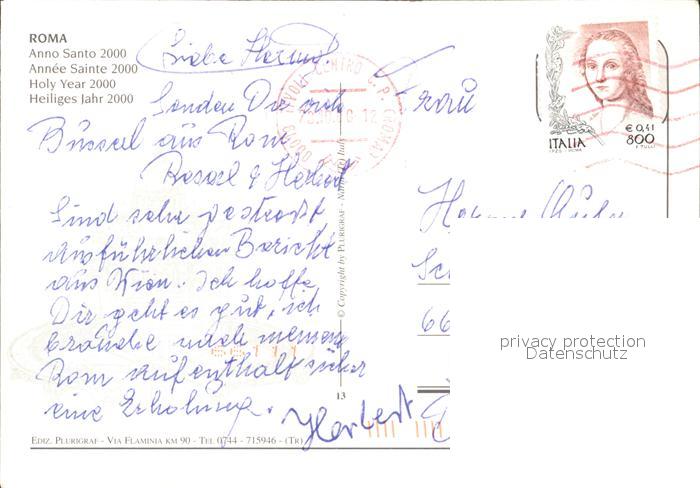 ROMA
Anno Santo 2000
Année Sainte 2000
Holy Year 2000
Heiliges Jahr 2000
Liebe
Senden Dir
Büssel aus Rom
& Herbert
Sind sehr
Ausführlichen Bericht
aus Wien. Ich hoffe
Dir geht es gut, ich
brauche nach meinem
Rom Aufenthalt sicher
eine Erholung.
Herbert
EDIZ. PLURIGRAF - VIA FLAMINIA KM 90 - TEL 0744 - 715946 - (TR)
© Copyright by PLURIGRAF - Narni (TR) Italy
13
TIVOLI CENTRO C.P. (ROMA)
€ 0,41
800
ITALIA
I.TULLI
Frau
66
privacy protection
Datenschutz